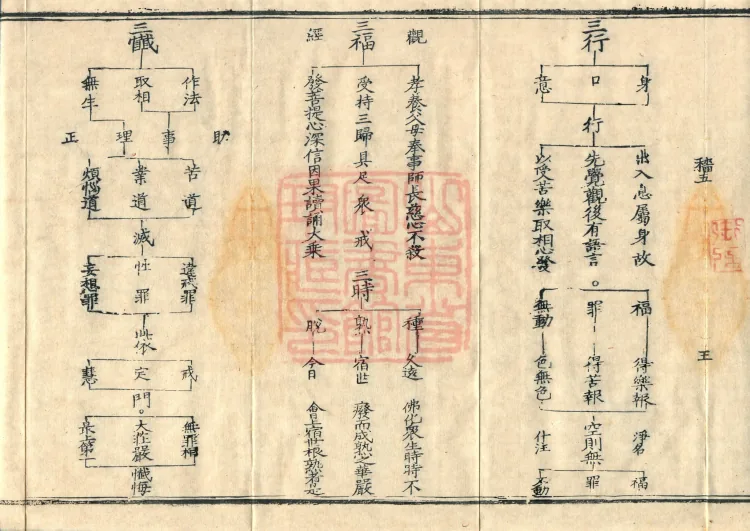 三行
身 口 意
行
出入息屬身故
先覺觀後有語言。
以受苦樂取相心發
福 罪 無動
得樂報
得苦報
色無色
淨名
空則無
什注
福 罪 不動
觀
三福
經
孝養父母奉事師長慈心不殺
受持三歸具足衆戒
發菩提心深信因果讀誦大乘
三時
種 熟 脫
久遠
宿世
今日
佛化衆生時時不
廢而成熟之華嚴
會上宿世根熟者是
三懺
作法 取相 無生
助 事 理 正
苦道 業道 煩惱道
滅
違戒罪 性罪 妄想罪
此依
戒 定 慧
門。
無罪相
大莊嚴懺悔
最上第一